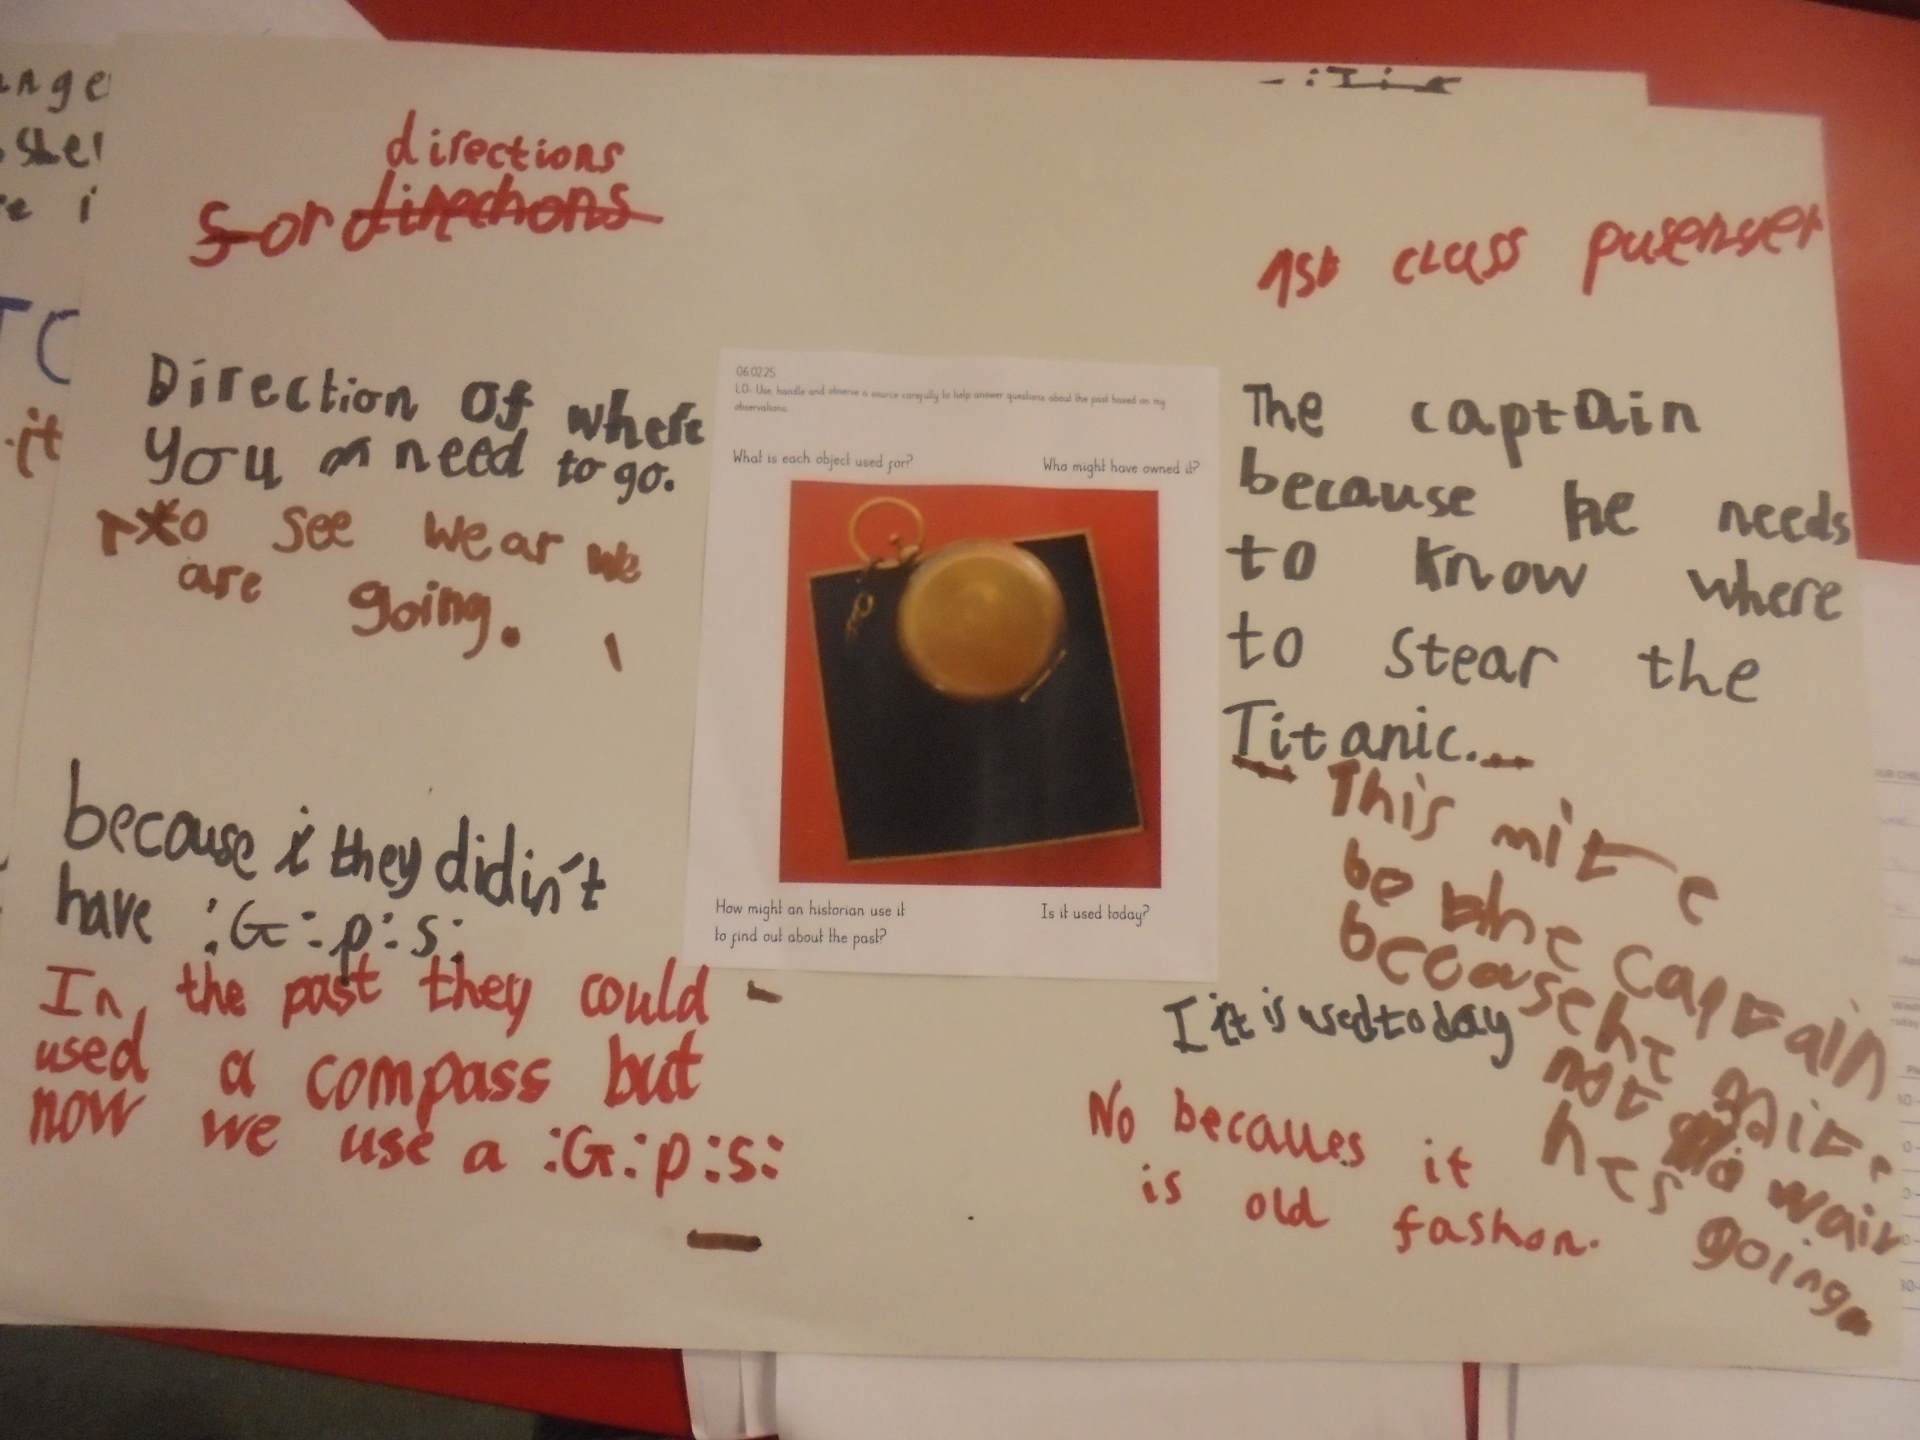 directions
for directions
1st class pusenger
Direction of where
you need to go.
to see wear we
are going.
06.02.25
LO- Use, handle and observe a source carefully to help answer questions about the past based on my
observations.
What is each object used for?
Who might have owned it?
The captain
because he needs
to know where
to stear the
Titanic.
This mite
be the captain
because he mite
not wair
hes going
because they didin't
have :G:p:s:
In the past they could
used a compass but
now we use a :G:p:s:
How might an historian use it
to find out about the past?
Is it used today?
I it is used today
No becaues it
is old fashon.